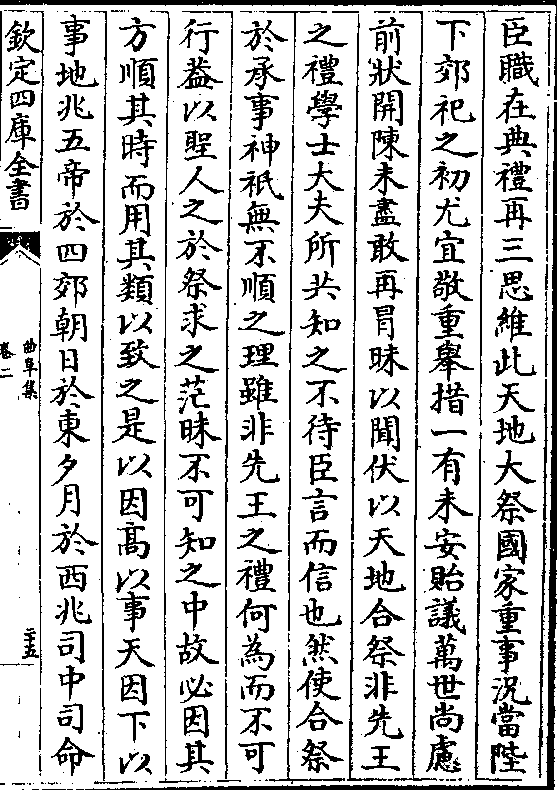 臣職在典禮再三思維此天地大祭國家重事況當陛
下郊祀之初尤宜敬重舉措一有未安貽議萬世尚慮
前狀開陳未盡敢再冐昧以聞伏以天地合祭非先王
之禮學士大夫所共知之不待臣言而信也然使合祭
於承事神祇無不順之理雖非先王之禮何為而不可
行葢以聖人之於祭求之茫昧不可知之中故必因其
方順其時而用其類以致之是以因髙以事天因下以
事地兆五帝於四郊朝日於東夕月於西兆司中司命
欽定四庫全書
曲阜集
卷二
二十五